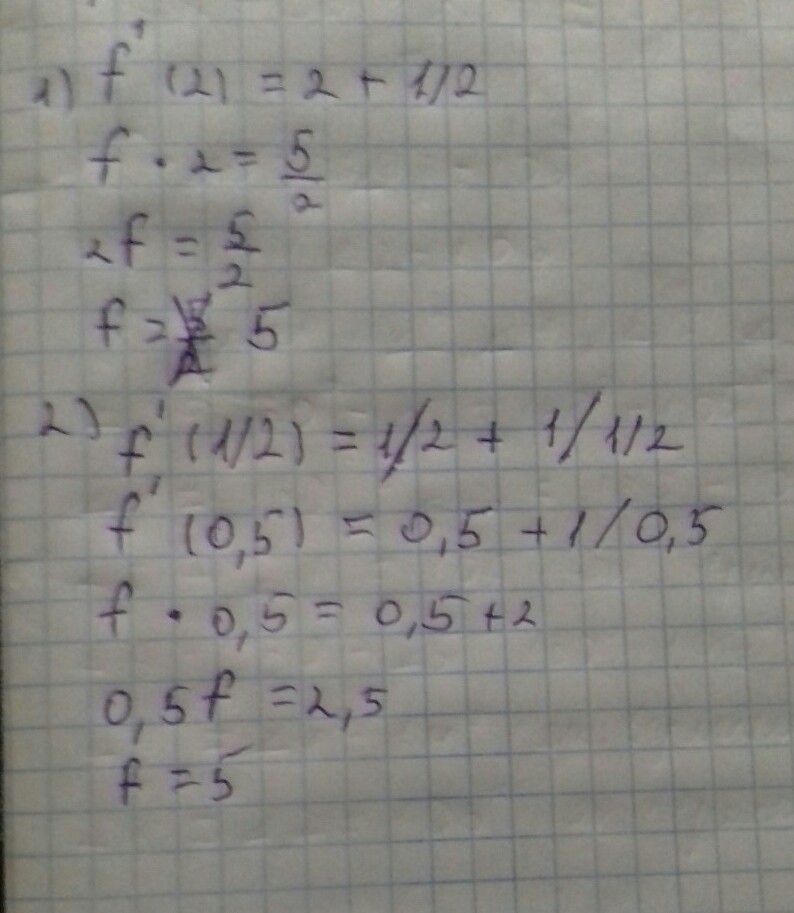 1) f' (2) = 2 + 1/2
f · 2 = 5/2
2f = 5/2
f = 5
2) f' (1/2) = 1/2 + 1/1/2
f' (0,5) = 0,5 + 1/0,5
f · 0,5 = 0,5 + 2
0,5f = 2,5
f = 5